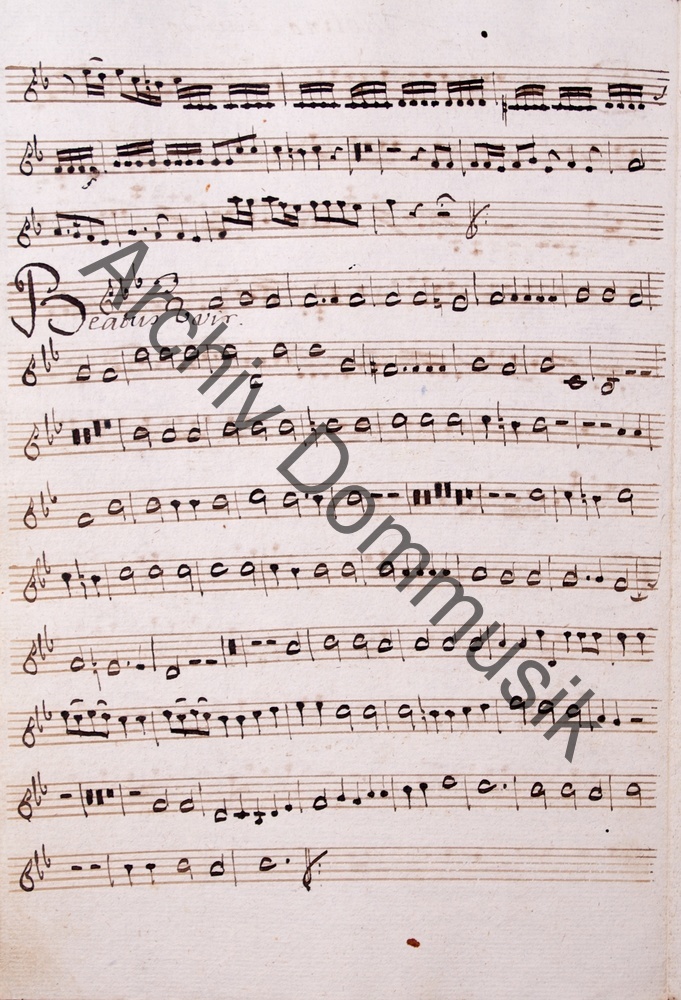 Beatus vir.
Archiv Dommusik